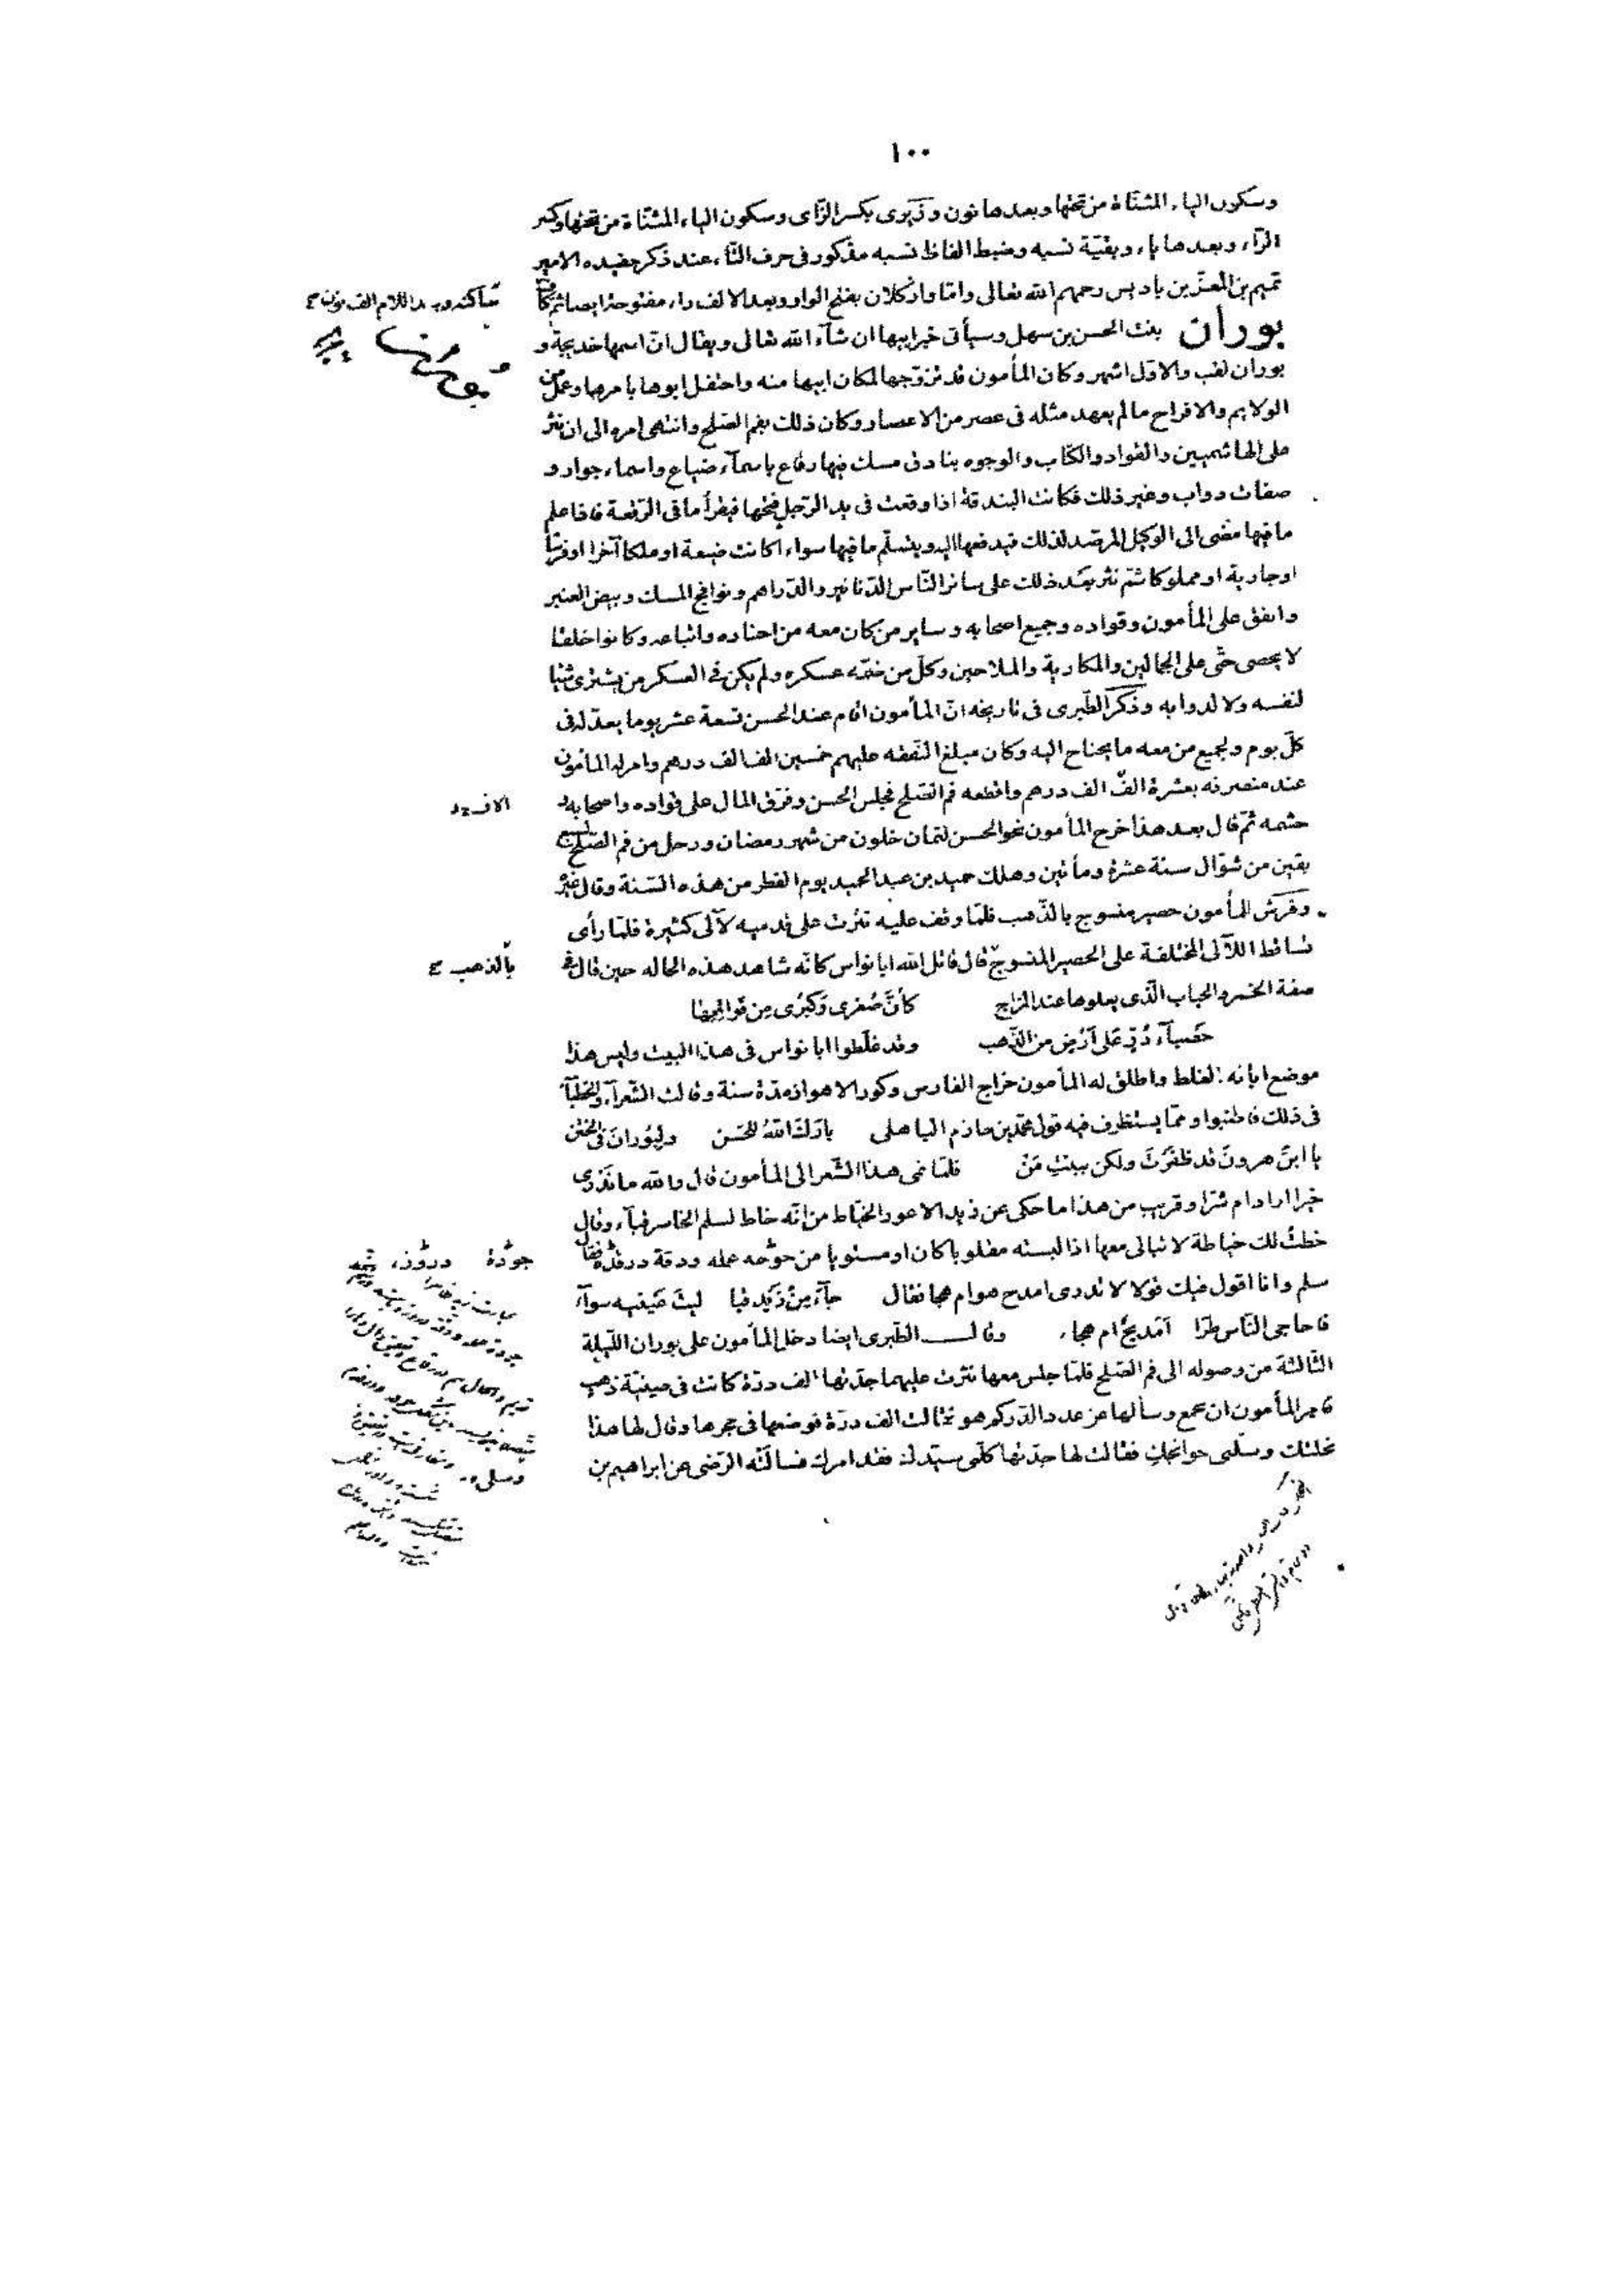 ١٠٠
وسكون الياء المثنّاة من تحتها وبعدها نون وزيرى بكسر الزّاى وسكون الياء المثنّاة من تحتها وكسر
الرّاء وبعدها ياء وبقيّة نسبه وضبط الفاظ نسبه مذكور فى حرف التّاء عند ذكر حفيده الامير
تميم بن المعزّ بن باديس رحمهم الله تعالى وامّا واركلان بفتح الواو وبعد الالف راء مفتوحة ايضا ثمّ كاف
ساكنه وبعد اللام الف نون
بوران بنت الحسن بن سهل وسيأتى خبر ابيها ان شآء الله تعالى ويقال انّ اسمها خديجة و
بوران لقب والاوّل اشهر وكان المأمون قد تزوّجها لمكان ابيها منه واحتفل ابوها بامرها وعمل من
الولايم والافراح ما لم يعهد مثله فى عصر من الاعصار وكان ذلك بفم الصّلح وانتهى امره الى ان نثر
على الهاشميين والقواد والكتّاب والوجوه بنادق مسك فيها رقاع باسمآء ضياع واسماء جوار و
صفات دواب وغير ذلك فكانت البندقة اذا وقعت فى يد الرّجل فتحها فيقرأ ما فى الرّقعة فاذا علم
ما فيها مضى الى الوكيل المرصد لذلك فيدفعها اليه ويتسلّم ما فيها سواء كانت ضيعة او ملكا آخر او فرسا
او جارية او مملوكا ثمّ نثر بعد ذلك على سائر النّاس الدّنانير والدّراهم ونوافج المسك وبيض العنبر
وانفق على المأمون وقواده وجميع اصحابه وساير من كان معه من اجناده واتباعه وكانوا خلقا
لا يحصى حتّى على الجمالين والمكارية والملاحين وكلّ من ضمّه عسكره ولم يكن فى العسكر من يشترى شيئا
لنفسه ولا لدوابه وذكر الطّبرى فى تاريخه انّ المأمون اقام عند الحسن تسعة عشر يوما يعدّ له فى
كلّ يوم ولجميع من معه ما يحتاج اليه وكان مبلغ النّفقه عليهم خمسين الف الف درهم وامر له المأمون
عند منصرفه بعشرة الف الف درهم واقطعه فم الصّلح فجلس الحسن وفرّق المال على قواده واصحابه و
الاف
حشمه ثمّ قال بعد هذا خرج المأمون نحو الحسن لثمان خلون من شهر رمضان ورحل من فم الصّلح لتسع
بقين من شوّال سنة عشرة ومأتين وهلك حميد بن عبد الحميد يوم الفطر من هذه السّنة وقال غيره
وفرش للمأمون حصير منسوج بالذّهب فلمّا وقف عليه نثرت على قدميه لآلى كثيرة فلمّا رأى
تساقط اللآلى المختلفة على الحصير المنسوج قال قاتل الله ابا نواس كانّه شاهد هذه الحاله حين قال فى
بالذهب
صفة الخمر والحباب الّذى يعلوها عند المزاج كأنّ صُغرى وَكُبرى مِن فَواقِعِها
حَصباء دُرّ عَلى اَرْضٍ من الذّهب وقد غلّطوا ابا نواس فى هذا البيت وليس هذا
موضع ابانه الغلط واطلق له المأمون خراج الفارس وكور الاهواز مدّة سنة وقالت الشّعرآء والخطبآء
فى ذلك فاطنبوا وممّا يستظرف فيه قول محمّد بن حازم الباهلى بارَكَ اللهُ للحَسن ولِبُورانَ فى الختن
يا ابنَ هرونَ قد ظَفَرْتَ ولكن ببنتِ مَنْ فلمّا نمى هذا الشّعر الى المأمون قال والله ما نَدْرى
خيرا اراد ام شرّا وقريب من هذا ما حكى عن زيد الاعور الخيّاط من انّه خاط لسلم الخاسر قبآء وقال
خطت لك خياطة لا تبالى معها اذا لبسته مقلوبا كان او مستويا من عمله ودقة درزه فقال
سلم وانا اقول فيك قولا لا تدرى امدح هو ام هجا فقال جآء مِنْ زَيد قبا ليت عينيه سوآء
فاحاجى النّاس طرّا اَمَديحٌ ام هجاء وقال الطّبرى ايضا دخل المأمون على بوران اللّيلة
الثّالثة من وصوله الى فم الصّلح فلمّا جلس معها نثرت عليهما جدّتها الف درّة كانت فى صينيّة ذهب
فامر المأمون ان تجمع وسألها عن عدد الدّر كم هو فقالت الف درّة فوضعها فى حجرها وقال لها هذا
نحلتك وسلى حوائجك فقالت لها جدّتها كلّمى سيّدك فقد امرك فسالته الرّضى عن ابراهيم بن
وسلى